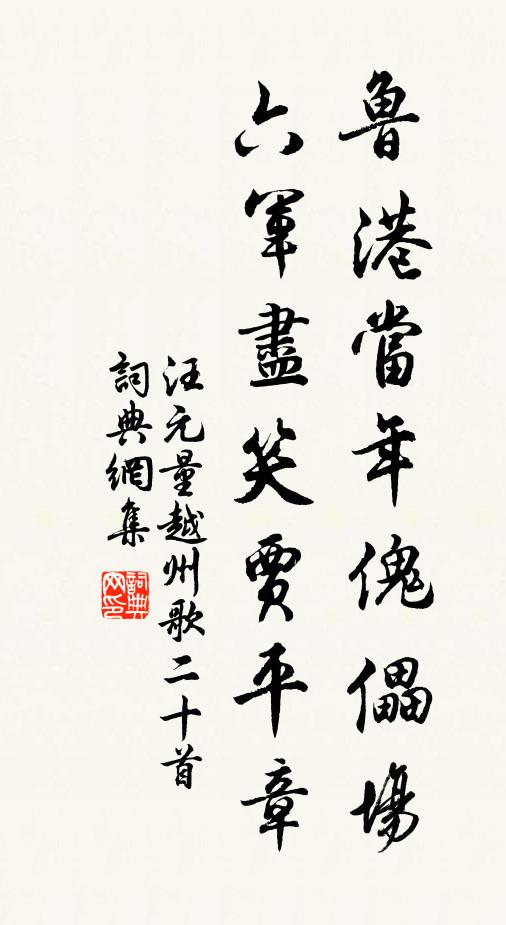 魯港當年傀儡場
六軍盡笑賈平章
汪元量越州歌二十首
詞典網集
詞典网印